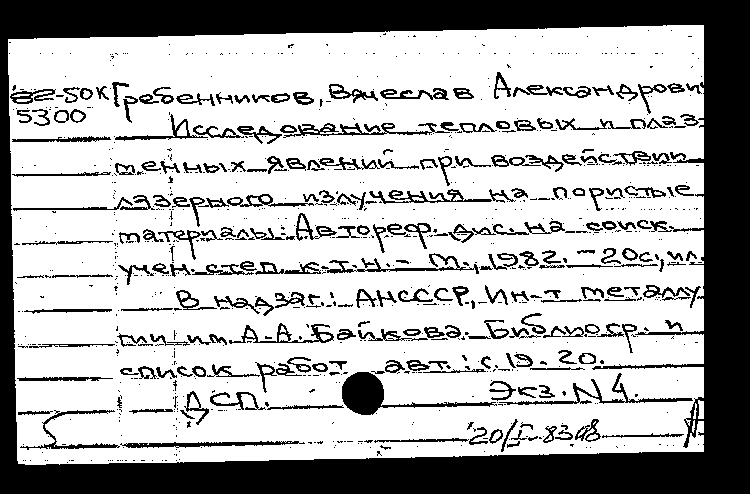 82-50К Гребенников, Вячеслав Александрович
5300
Исследование тепловых и плаз-
менных явлений при воздействии
лазерного излучения на пористые
материалы: Автореф. дис. на соиск.
учен. степ. к.т.н. - М., 1982. - 20с., ил.
В надзаг.: АНСССР, Ин-т металлу
гии им. А.А. Байкова. Библиогр. и
список работ авт.: с. 19-20.
ДСП. Экз. N 4.
20/I-83